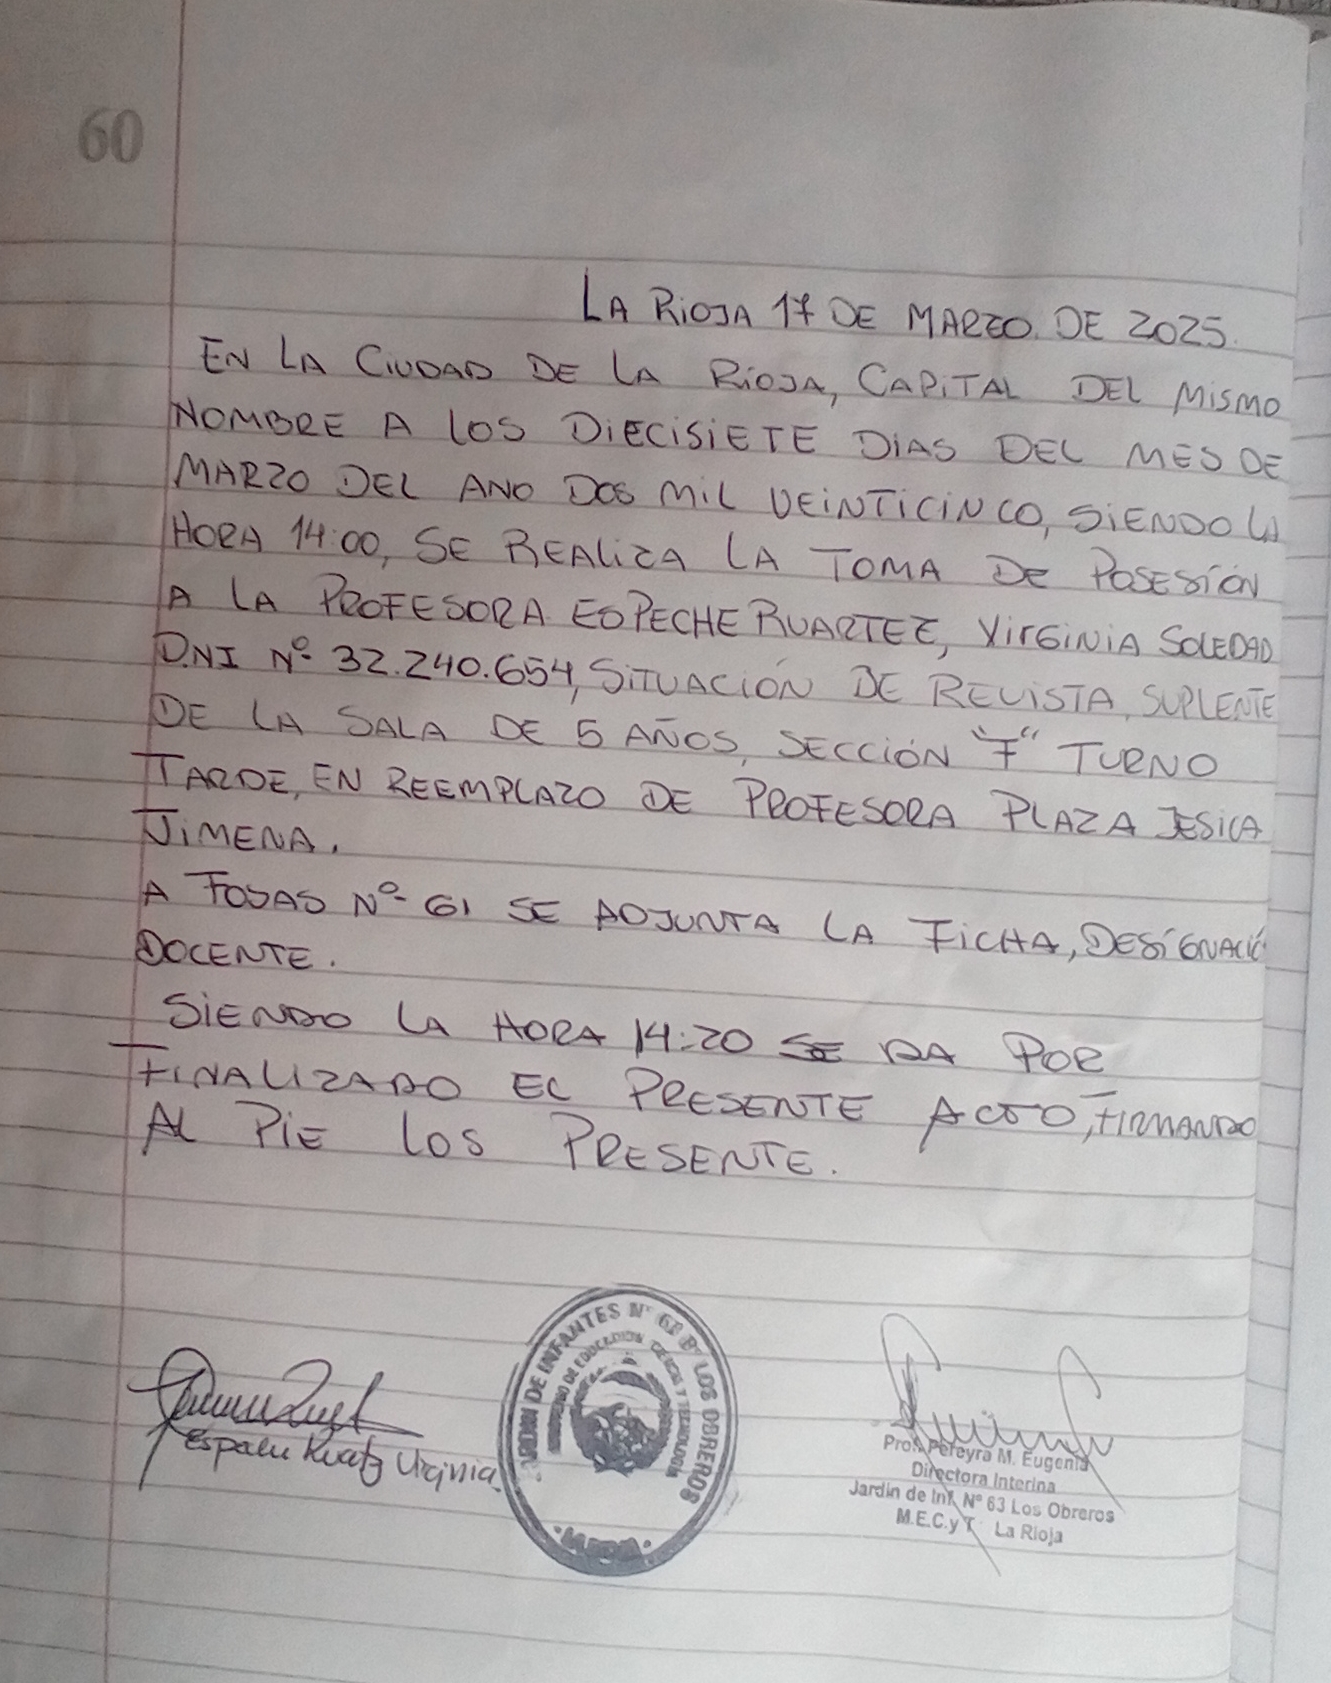 60
LA RIOJA 17 DE MARZO. DE 2025.
EN LA CIUDAD DE LA RIOJA, CAPITAL DEL MISMO
NOMBRE A LOS DIECISIETE DIAS DEL MES DE
MARZO DEL ANO DOS MIL VEINTICINCO, SIENDO LA
HORA 14:00, SE REALIZA LA TOMA DE POSESIÓN
A LA PROFESORA ESPECHE RUARTEZ, VIRGINIA SOLEDAD
D.N.I Nº 32.240.654, SITUACIÓN DE REVISTA, SUPLENTE
DE LA SALA DE 5 AÑOS, SECCIÓN "F" TURNO
TARDE, EN REEMPLAZO DE PROFESORA PLAZA JESICA
JIMENA.
A FOJAS Nº 61 SE ADJUNTA LA FICHA, DESIGNACIÓ
DOCENTE.
SIENDO LA HORA 14:20 SE DA POR
FINALIZADO EL PRESENTE ACTO, FIRMANDO
AL PIE LOS PRESENTE.
Virginia
JARDIN DE INFANTES Nº 63 Bº LOS OBREROS
MINISTERIO DE EDUCACION CIENCIA Y TECNOLOGIA
Prof. Pereyra M. Eugenia
Directora Interina
Jardin de Inf. Nº 63 Los Obreros
M.E.C.y T. La Rioja